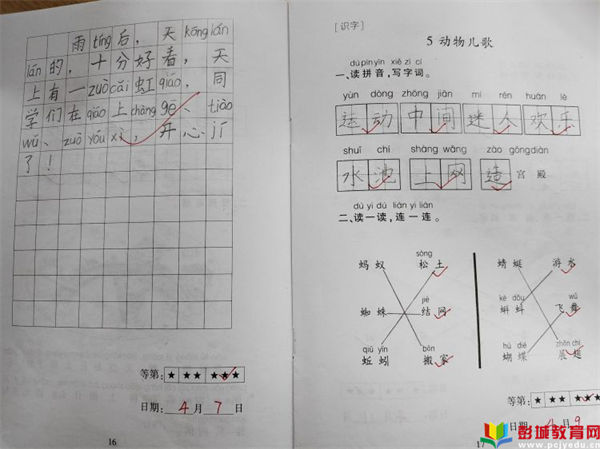 雨tíng后，天kōng lán
lán的，十分好看，天
上有一zuò cǎi虹qiáo，同
学们在qiáo上chàng gē、tiào
wǔ、zuò yóu xì，开心jí
了！
等第：★ ★★ ★★★
日期：4月7日
16
[识字]
5 动物儿歌
dú pīn yīn xiě zì cí
一、读拼音，写字词。
yùn dòng zhōng jiān mí rén huān lè
运动 中间 迷人 欢乐
shuǐ chí shàng wǎng zào gōng diàn
水池 上网 造宫殿
dú yi dú lián yi lián
二、读一读，连一连。
sōng
蚂蚁 松土 蜻蜓 游水
jié kē dǒu wǔ
蜘蛛 结网 蝌蚪 飞舞
qiū yǐn bān hú dié zhǎn chì
蚯蚓 搬家 蝴蝶 展翅
等第：★ ★★ ★★★
日期：4月9
17
彭城教育网
www.pcjyedu.cn